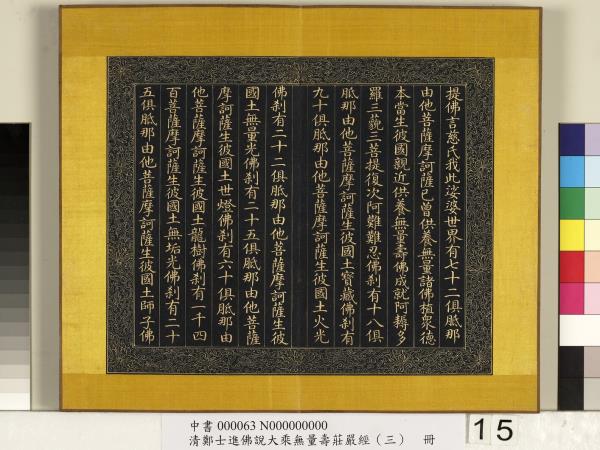 提佛言慈氏我此娑婆世界有七十二俱胝那
由他菩薩摩訶薩已曾供養無量諸佛植眾德
本當生彼國親近供養無量壽佛成就阿耨多
羅三藐三菩提復次阿難難忍佛剎有十八俱
胝那由他菩薩摩訶薩生彼國土寶藏佛剎有
九十俱胝那由他菩薩摩訶薩生彼國土火光
佛剎有二十二俱胝那由他菩薩摩訶薩生彼
國土無量光佛剎有二十五俱胝那由他菩薩
摩訶薩生彼國土世燈佛剎有六十俱胝那由
他菩薩摩訶薩生彼國土龍樹佛剎有一千四
百菩薩摩訶薩生彼國土無垢光佛剎有二十
五俱胝那由他菩薩摩訶薩生彼國土師子佛
中書 000063 N000000000
清鄭士進佛說大乘無量壽莊嚴經（三） 冊
15